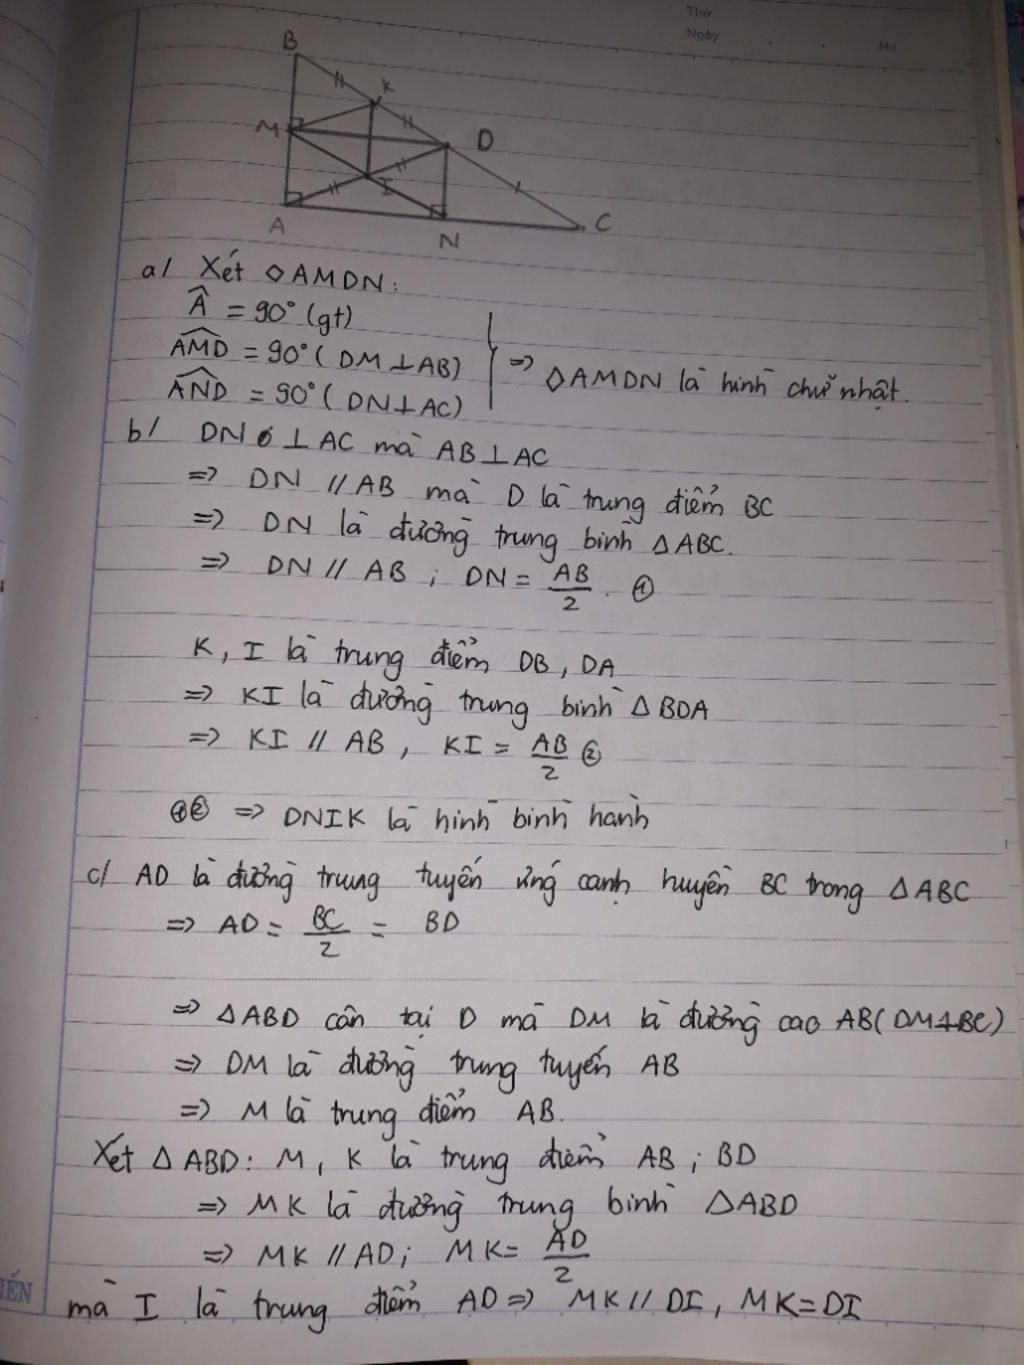 Thứ
Ngày
No.
B
K
M
D
I
A
N
C
a/ Xét ◇AMDN:
Â = 90° (gt)
AMD = 90° ( DM ⊥ AB)
AND = 90° ( DN ⊥ AC)
=> ◇AMDN là hình chữ nhật.
b/ DN ⊥ AC mà AB ⊥ AC
=> DN // AB mà D là trung điểm BC
=> DN là đường trung bình △ABC.
=> DN // AB ; DN = AB/2 . ①
K, I là trung điểm DB, DA
=> KI là đường trung bình △BDA
=> KI // AB, KI = AB/2 ②
①② => DNIK là hình bình hành
c/ AD là đường trung tuyến ứng cạnh huyền BC trong △ABC
=> AD = BC/2 = BD
=> △ABD cân tại D mà DM là đường cao AB (DM⊥BC)
=> DM là đường trung tuyến AB
=> M là trung điểm AB.
Xét △ABD: M, K là trung điểm AB; BD
=> MK là đường trung bình △ABD
=> MK // AD; MK = AD/2
IẾN
mà I là trung điểm AD => MK // DI, MK = DI